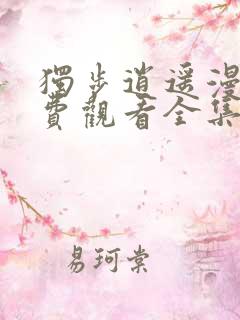 獨步逍遥漫
費觀看全集
易珂棠